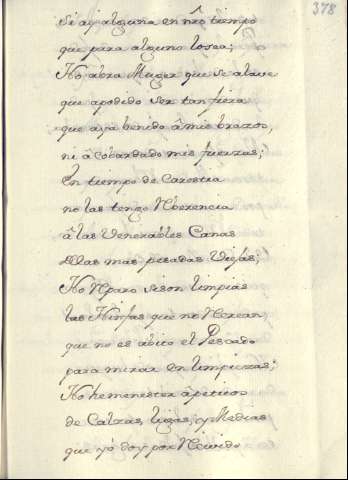 378
Si ay alguna en nrô tiempo
que para alguno lo sea;
No abra Muger que se alave
que apodido ser tan fiera
que aya benido â mis brazos,
ni âcobardado mis fuerzas;
En tiempo de Carostia
no las tengo Rberencia
â las Venerables Canas
de las mas pesadas Viejas;
No Rparo si son limpias
las Ninfas que no Rcrean,
que no es abito el Pescado
para mirar en limpiezas;
No he menester âpetitos
de Calzas, ligas, y Medias
que yô doy por Rcivido